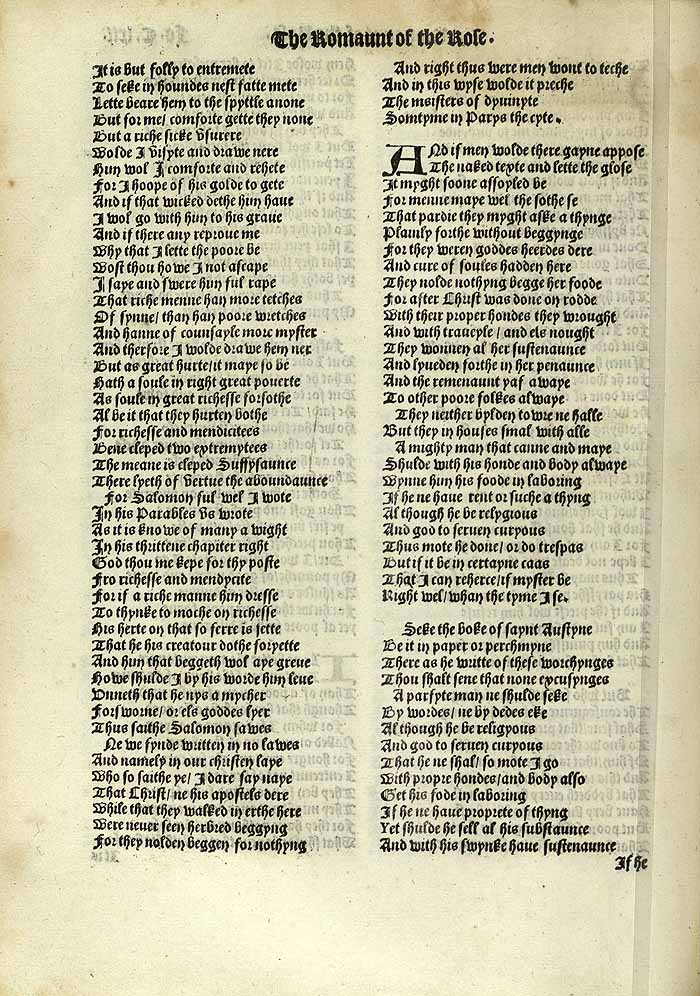 The Romaunt of the Rose.
It is but folly to entremete
To seke in houndes nest fatte mete
Lette beare hem to the spyttle anone
But for me/ comforte gette they none
But a riche sicke vsurere
Wolde I visyte and drawe nere
Him wol I comforte and rehete
For I hoope of his golde to gete
And if that wicked dethe him haue
I wol go with him to his graue
And if there any reproue me
Why that I lette the poore be
Wost thou howe I not ascape
I saye and swere him ful rape
That riche menne han more tetches
Of synne/ than han poore wretches
And hanne of counsayle more myster
And therfore I wolde drawe hem ner
But as great hurte/it maye so be
Hath a soule in right great pouerte
As soule in great richesse forsothe
Al be it that they hurten bothe
For richesse and mendicitees
Bene cleped two extremytees
The meane is cleped Suffysaunce
There lyeth of vertue the aboundaunce
For Salomon ful wel I wote
In his Parables vs wrote
As it is knowe of many a wight
In his thrittene chapiter right
God thou me kepe for thy poste
Fro richesse and mendycite
For if a riche manne him dresse
To thynke to moche on richesse
His herte on that so ferre is sette
That he his creatour dothe foryette
And him that beggeth wol aye greue
Howe shulde I by his worde him leue
Vnneth that he nys a mycher
Forsworne/ or els goddes lyer
Thus saithe Salomon sawes
Ne we fynde written in no lawes
And namely in our christen laye
Who so saithe ye/ I dare say naye
That Christ/ ne his apostels dere
While that they walked in erthe here
Were neuer seen herbred beggyng
For they nolden beggen for nothyng
And right thus were men wont to teche
And in this wyse wolde it preche
The maisters of dyuinyte
Somtyme in Parys the cyte.
ANd if men wolde there gayne appose
The naked texte and lette the glose
It myght soone assoyled be
For menne maye wel the sothe se
That pardie they myght aske a thynge
Plainly forthe without beggynge
For they weren goddes heerdes dere
And cure of soules hadden here
They nolde nothyng begge her foode
For after Christ was done on rodde
With their proper hondes they wrought
And with traueyle/ and els nought
They wonnen al her sustenaunce
And lyueden forthe in her penaunce
And the remenaunt yaf awaye
To other poore folkes alwaye
They neither bylden towre ne halle
But they in houses smal with alle
A mighty man that canne and maye
Shulde with his honde and body alwaye
Wynne him his foode in laboring
If he ne haue rent or suche a thyng
Al though he be relygious
And god to seruen curyous
Thus mote he done/ or do trespas
But if it be in certayne caas
That I can reherce/if myster be
Right wel/whan the tyme I se.
Seke the boke of saynt Austyne
Be it in paper or perchmyne
There as he writte of these worchynges
Thou shalt sene that none excusynges
A parfyte man ne shulde seke
By wordes/ ne by dedes eke
Al though he be religyous
And god to seruen curyous
That he ne shal/ so mote I go
With propre hondes/and body also
Get his fode in laboring
If he ne haue proprete of thyng
Yet shulde he sell al his substaunce
And with his swynke haue sustenaunce
If he